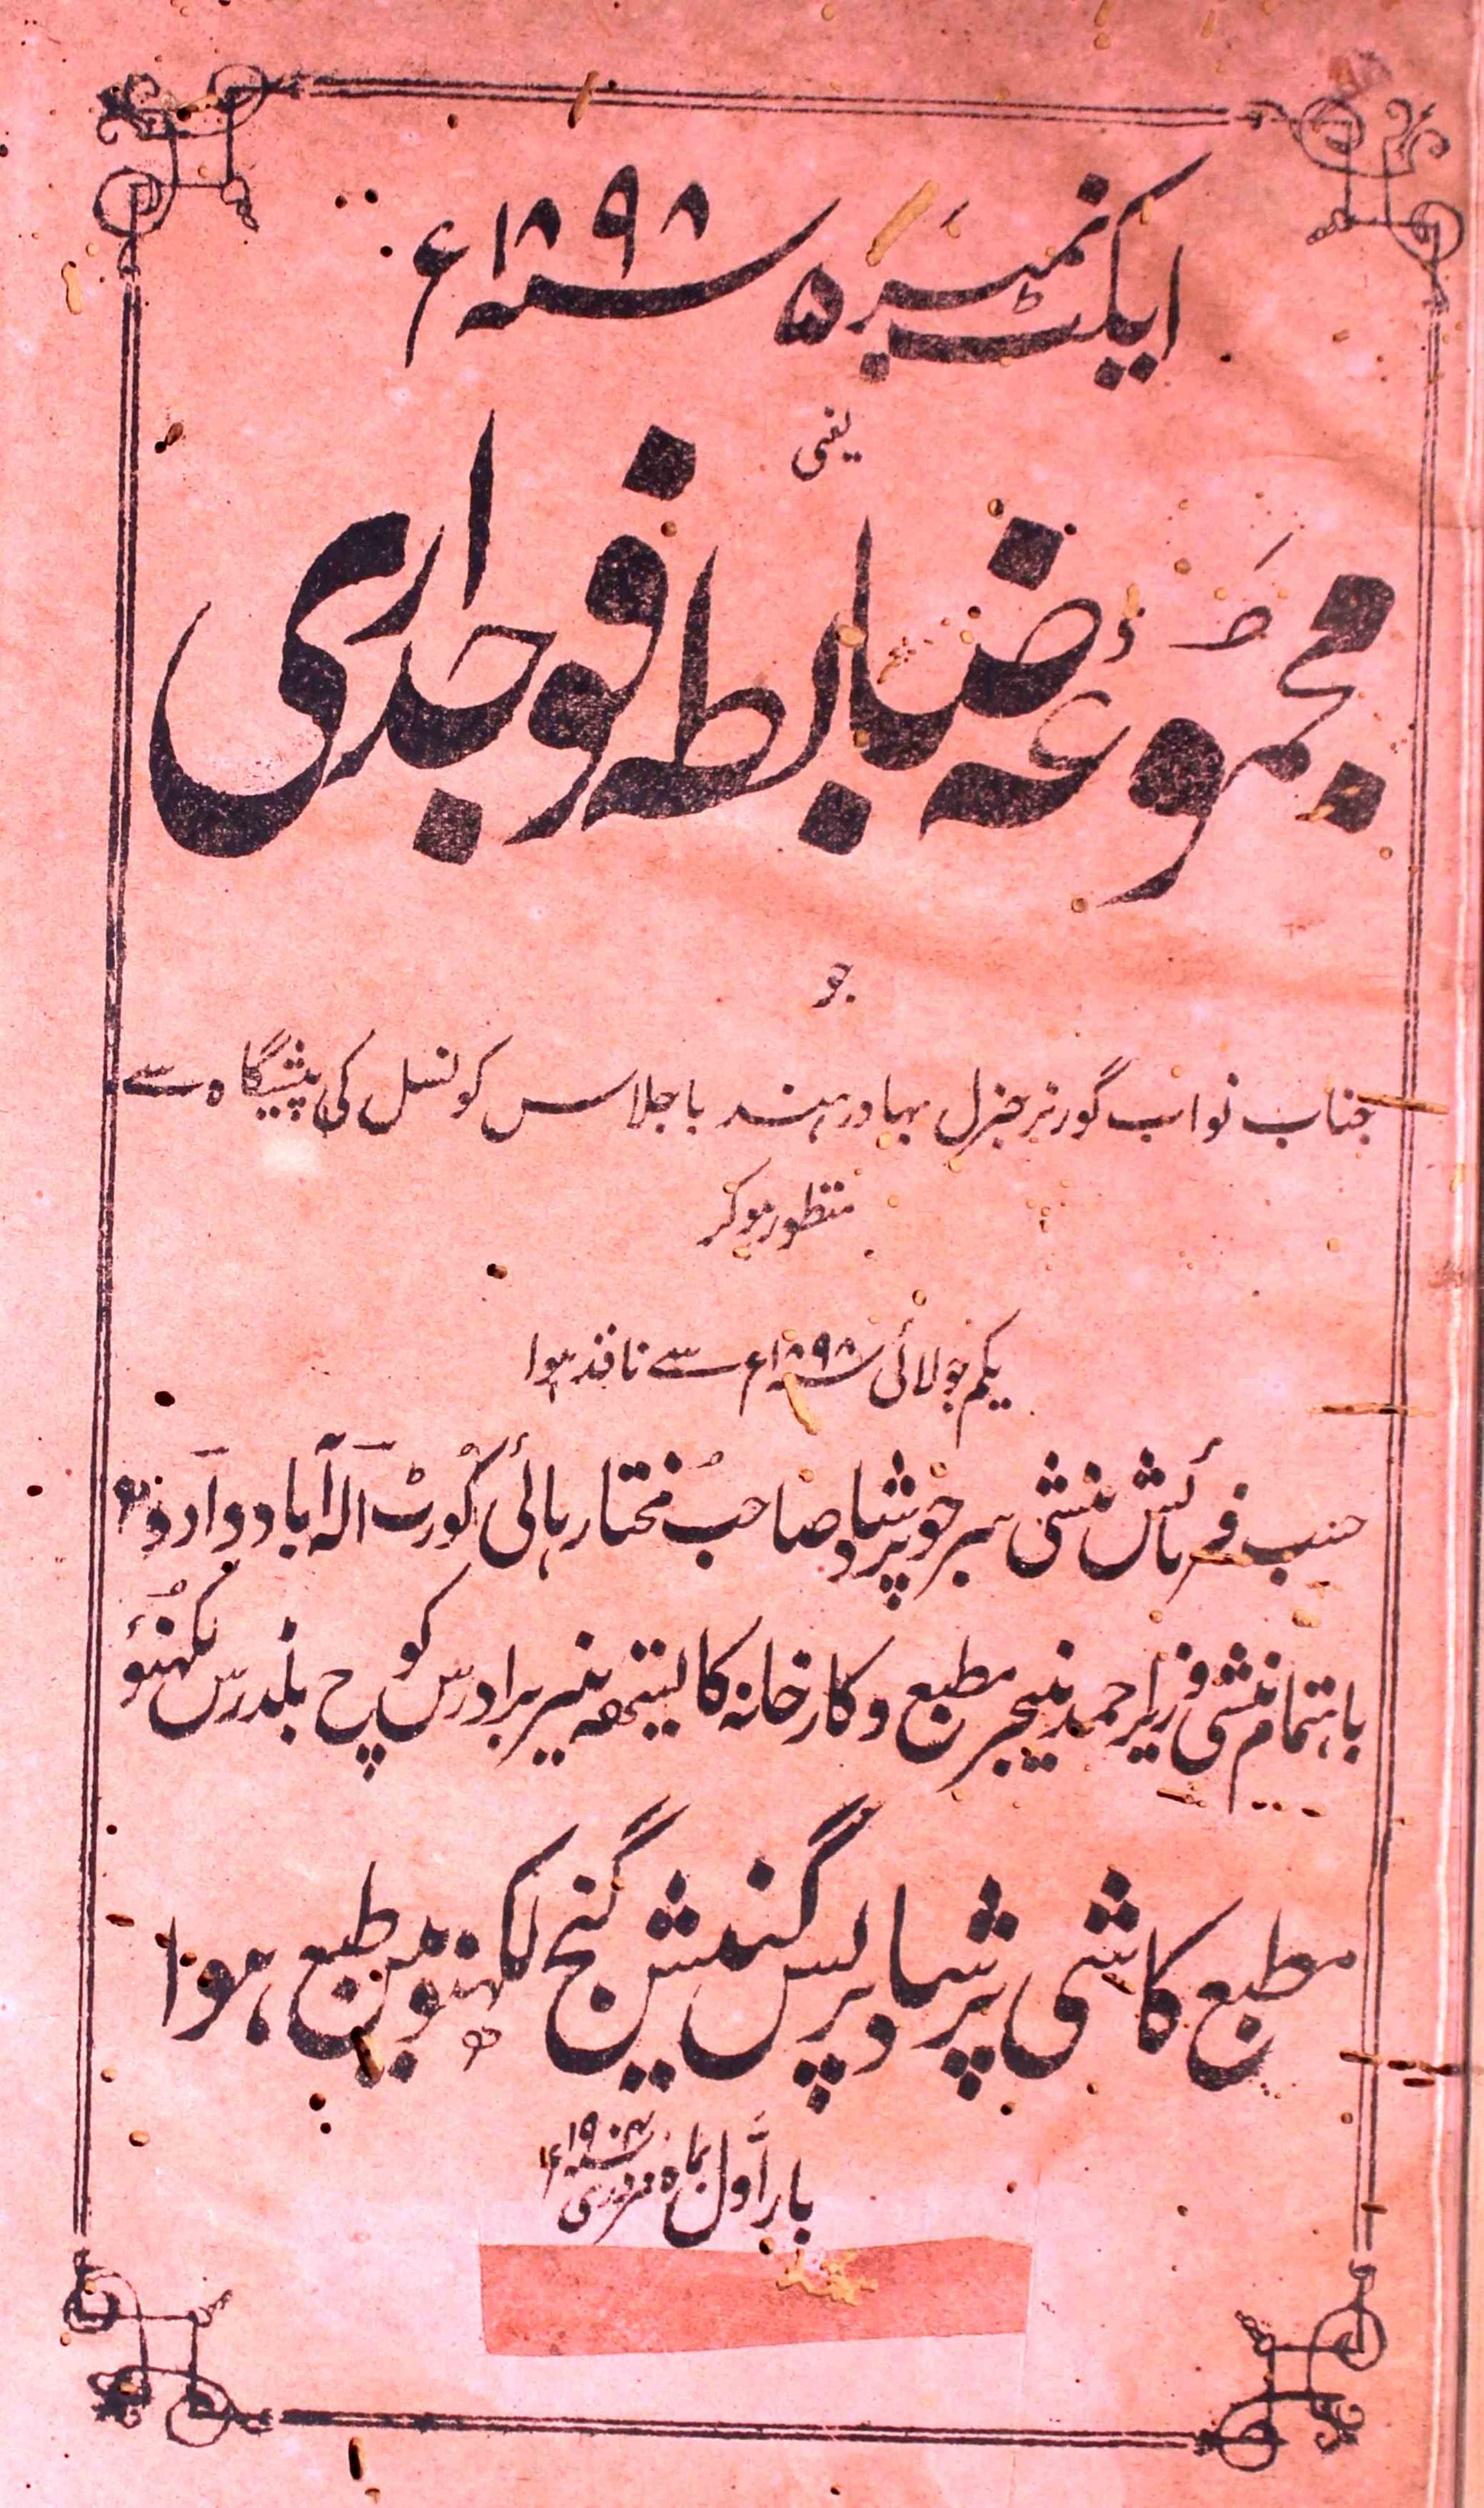 ایکٹ نمبر ۵ سنہ ۱۸۹۸ء
یعنی
مجموعۂ ضابطہ فوجداری
جو
جناب نواب گورنر جنرل بہادر ہند باجلاس کونسل کی پیشگاہ سے
منظور ہو کر
یکم جولائی سنہ ۱۸۹۸ء سے نافذ ہوا
حسب فرمائش منشی سرجو پرشاد صاحب مختار ہائی کورٹ الہ آباد
باہتمام منشی وزیر احمد منیجر مطبع و کارخانہ کایستھہ برادرس کوچ بلڈرس لکہنؤ
مطبع کاشی پرشاد پرس گنیش گنج لکہنو مین طبع ہوا
بار اول بماہ فروری سنہ ۱۹۰۲ء